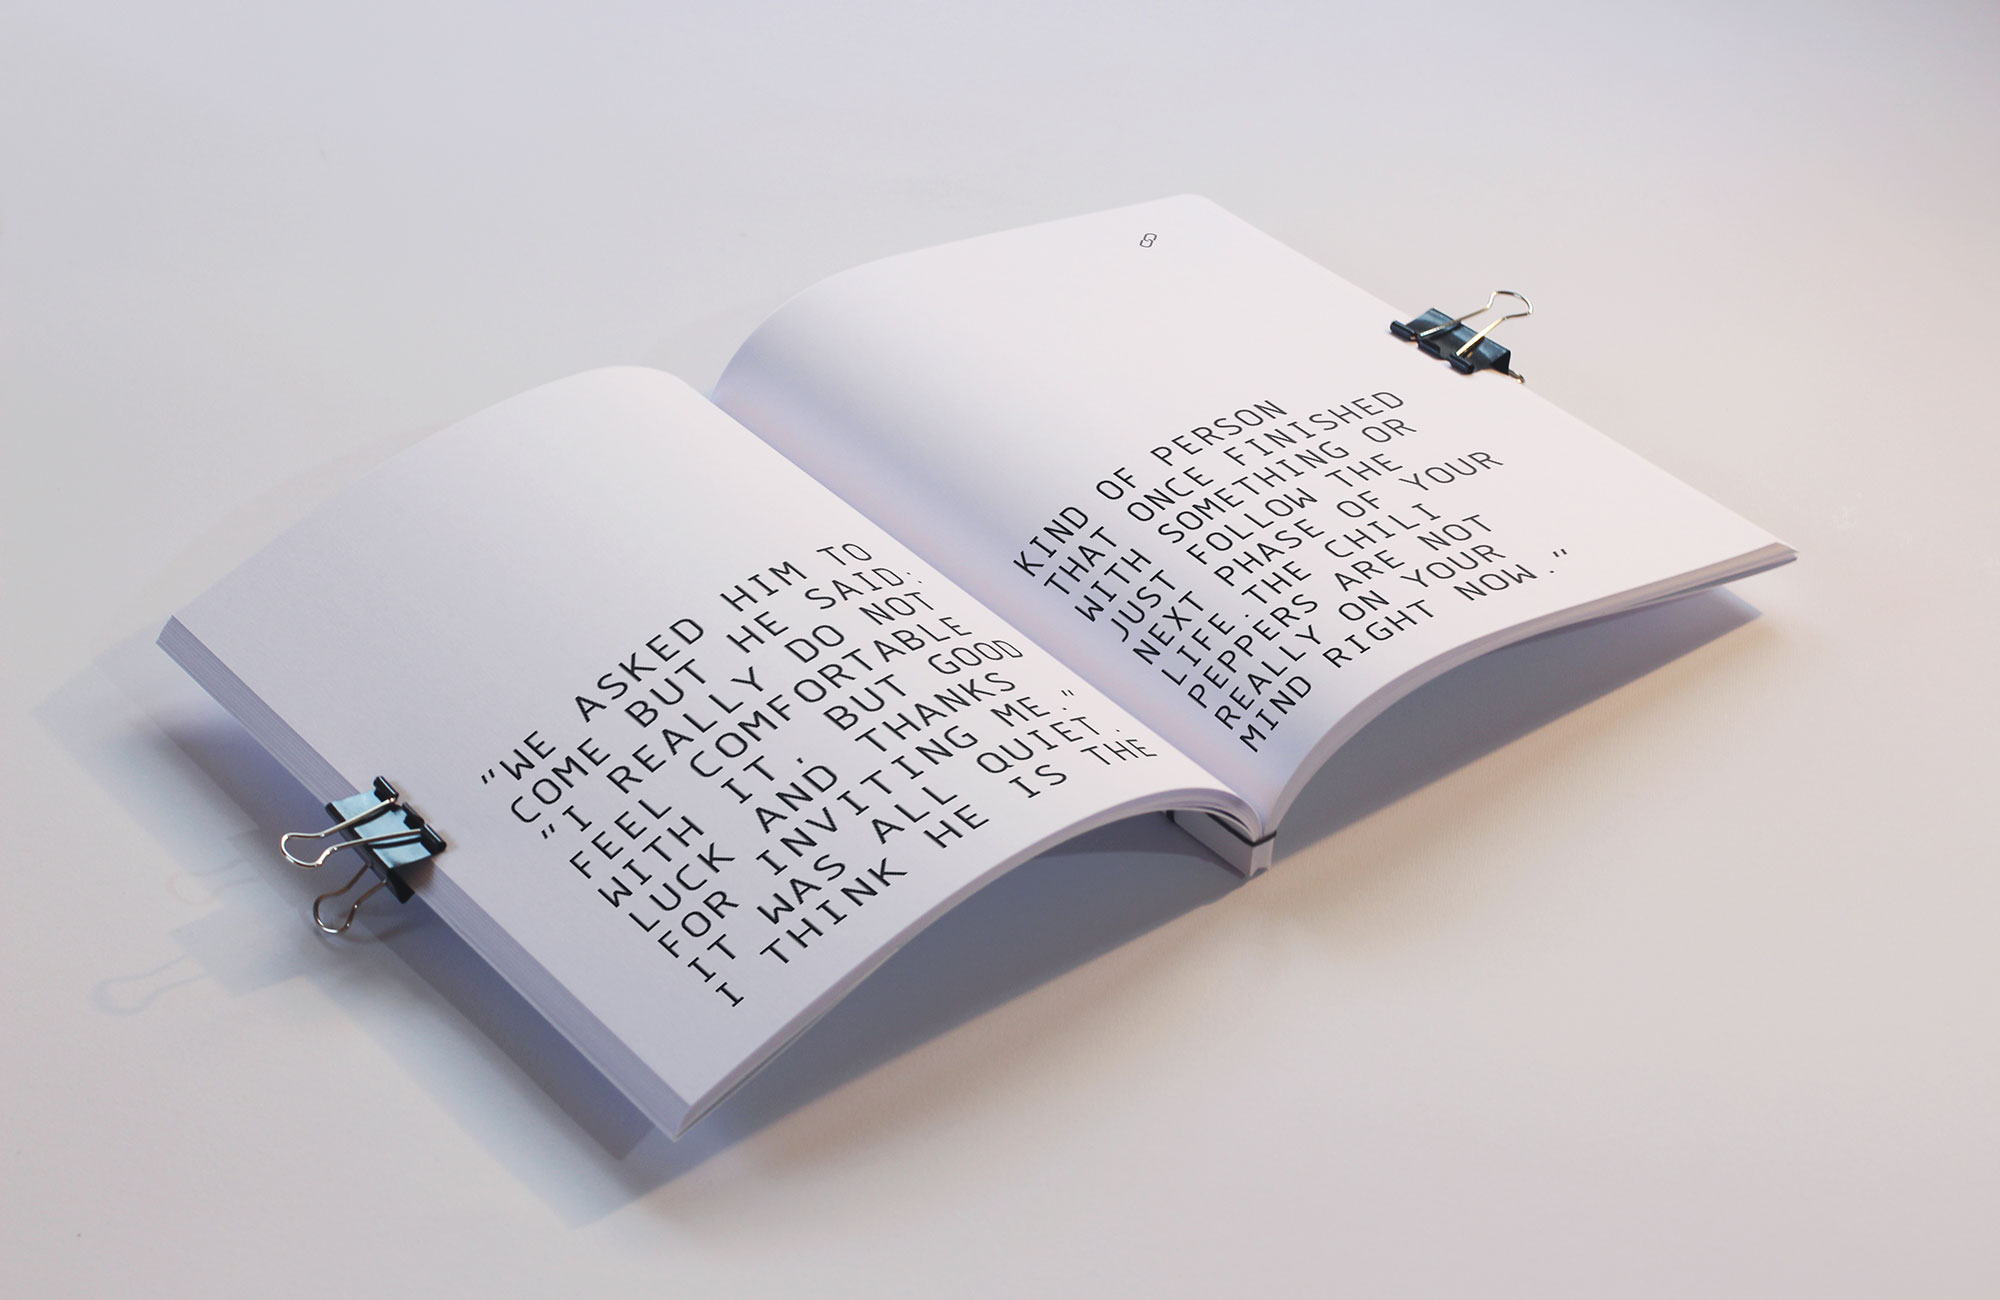 "WE ASKED HIM TO
COME BUT HE SAID:
"I REALLY DO NOT
FEEL COMFORTABLE
WITH IT. BUT GOOD
LUCK AND THANKS
FOR INVITING ME."
IT WAS ALL QUIET.
I THINK HE IS THE
KIND OF PERSON
THAT ONCE FINISHED
WITH SOMETHING OR
JUST FOLLOW THE
NEXT PHASE OF YOUR
LIFE.THE CHILI
PEPPERS ARE NOT
REALLY ON YOUR
MIND RIGHT NOW."